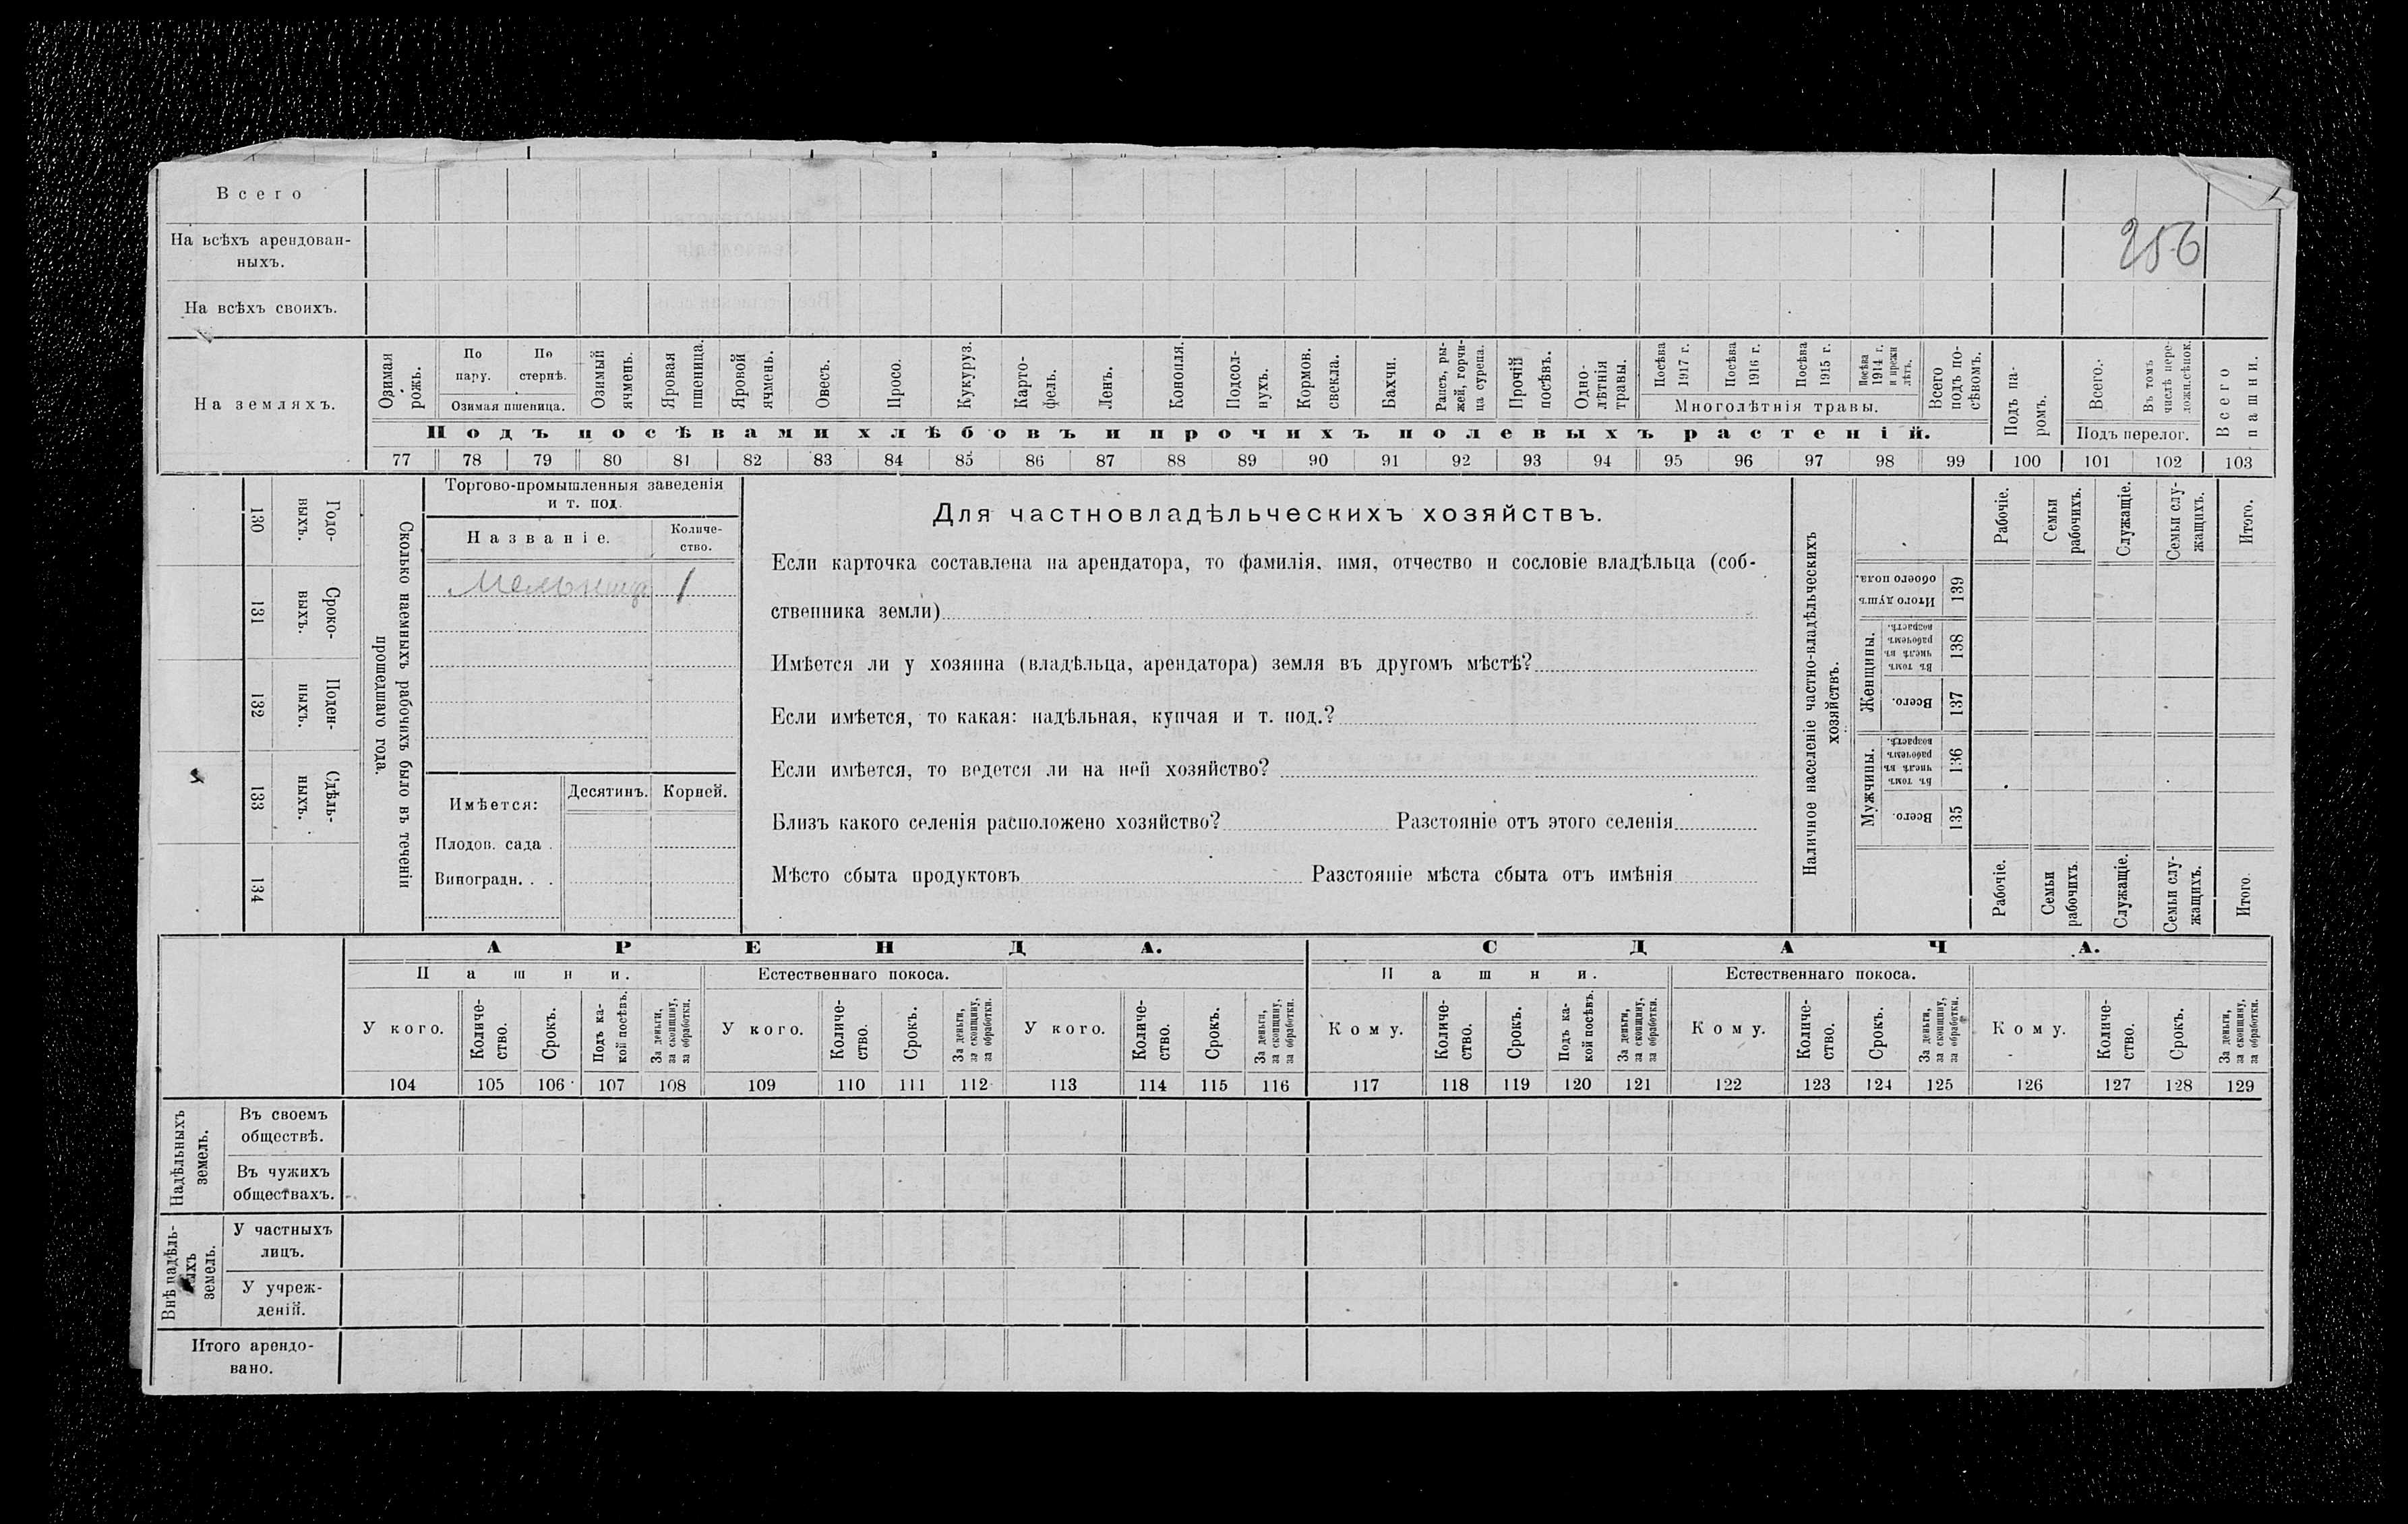 Всего
256
На всѣхъ арендован-
ныхъ.
На всѣхъ своихъ.
На земляхъ.
Озимая
рожь.
По
пару.
По
стернѣ.
Озимая пшеница.
Озимый
ячмень.
Яровая
пшеница.
Яровой
ячмень.
Овесъ.
Просо.
Кукуруз.
Карто-
фель.
Ленъ.
Конопля.
Подсол-
нухъ.
Кормов.
свекла.
Бахчи.
Рапсъ, ры-
жей, горчи-
ца сурепа.
Прочій
посѣвъ.
Одно-
лѣтнія
травы.
Посѣва
1917 г.
Посѣва
1916 г.
Посѣва
1915 г.
Посѣва
1914 г.
и прежн
лѣтъ.
Многолѣтнія травы.
Всего
подъ по-
сѣвомъ.
Подъ па-
ромъ.
Всего.
Въ томъ
числѣ пере-
ложн.сѣнок.
Подъ перелог.
Всего
пашни.
Подъ посѣвами хлѣбовъ и прочихъ полевыхъ растеній.
77 78 79 80 81 82 83 84 85 86 87 88 89 90 91 92 93 94 95 96 97 98 99 100 101 102 103
130
Годо-
выхъ.
131
Сроко-
выхъ.
132
Поден-
ныхъ.
133
Сдѣль-
ныхъ.
134
Сколько наемныхъ рабочихъ было въ теченіи
прошедшаго года.
Торгово-промышленныя заведенія
и т. под.
Названіе.
Количе-
ство.
Мельница 1
Имѣется:
Десятинъ.
Корней.
Плодов. сада .
Виноградн. . .
Для частновладѣльческихъ хозяйствъ.
Если карточка составлена на арендатора, то фамилія, имя, отчество и сословіе владѣльца (соб-
ственника земли)
Имѣется ли у хозяина (владѣльца, арендатора) земля въ другомъ мѣстѣ?
Если имѣется, то какая: надѣльная, купчая и т. под.?
Если имѣется, то ведется ли на ней хозяйство?
Близъ какого селенія расположено хозяйство? Разстояніе отъ этого селенія
Мѣсто сбыта продуктовъ Разстояніе мѣста сбыта отъ имѣнія
Наличное населеніе частно-владѣльческихъ
хозяйствъ.
Рабочіе.
Семьи
рабочихъ.
Служащіе.
Семьи слу-
жащихъ.
Итого.
Итого душъ
обоего пола.
139
Женщины.
Въ томъ
числѣ въ
рабочемъ
возрастѣ.
138
Всего.
137
Мужчины.
Въ томъ
числѣ въ
рабочемъ
возрастѣ.
136
Всего.
135
Рабочіе.
Семьи
рабочихъ.
Служащіе.
Семьи слу-
жащихъ.
Итого.
АРЕНДА.
СДАЧА.
Пашни.
Естественнаго покоса.
Пашни.
Естественнаго покоса.
У кого.
Количе-
ство.
Срокъ.
Подъ ка-
кой посѣвъ.
За деньги,
за скопщину,
за обработки.
У кого.
Количе-
ство.
Срокъ.
За деньги,
за скопщину,
за обработки.
У кого.
Количе-
ство.
Срокъ.
За деньги,
за скопщину,
за обработки.
Кому.
Количе-
ство.
Срокъ.
Подъ ка-
кой посѣвъ.
За деньги,
за скопщину,
за обработки.
Кому.
Количе-
ство.
Срокъ.
За деньги,
за скопщину,
за обработки.
Кому.
Количе-
ство.
Срокъ.
За деньги,
за скопщину,
за обработки.
104 105 106 107 108 109 110 111 112 113 114 115 116 117 118 119 120 121 122 123 124 125 126 127 128 129
Надѣльныхъ
земель.
Въ своемъ
обществѣ.
Въ чужихъ
обществахъ.
Внѣ надѣль-
ныхъ
земель.
У частныхъ
лицъ.
У учреж-
деній.
Итого арендо-
вано.